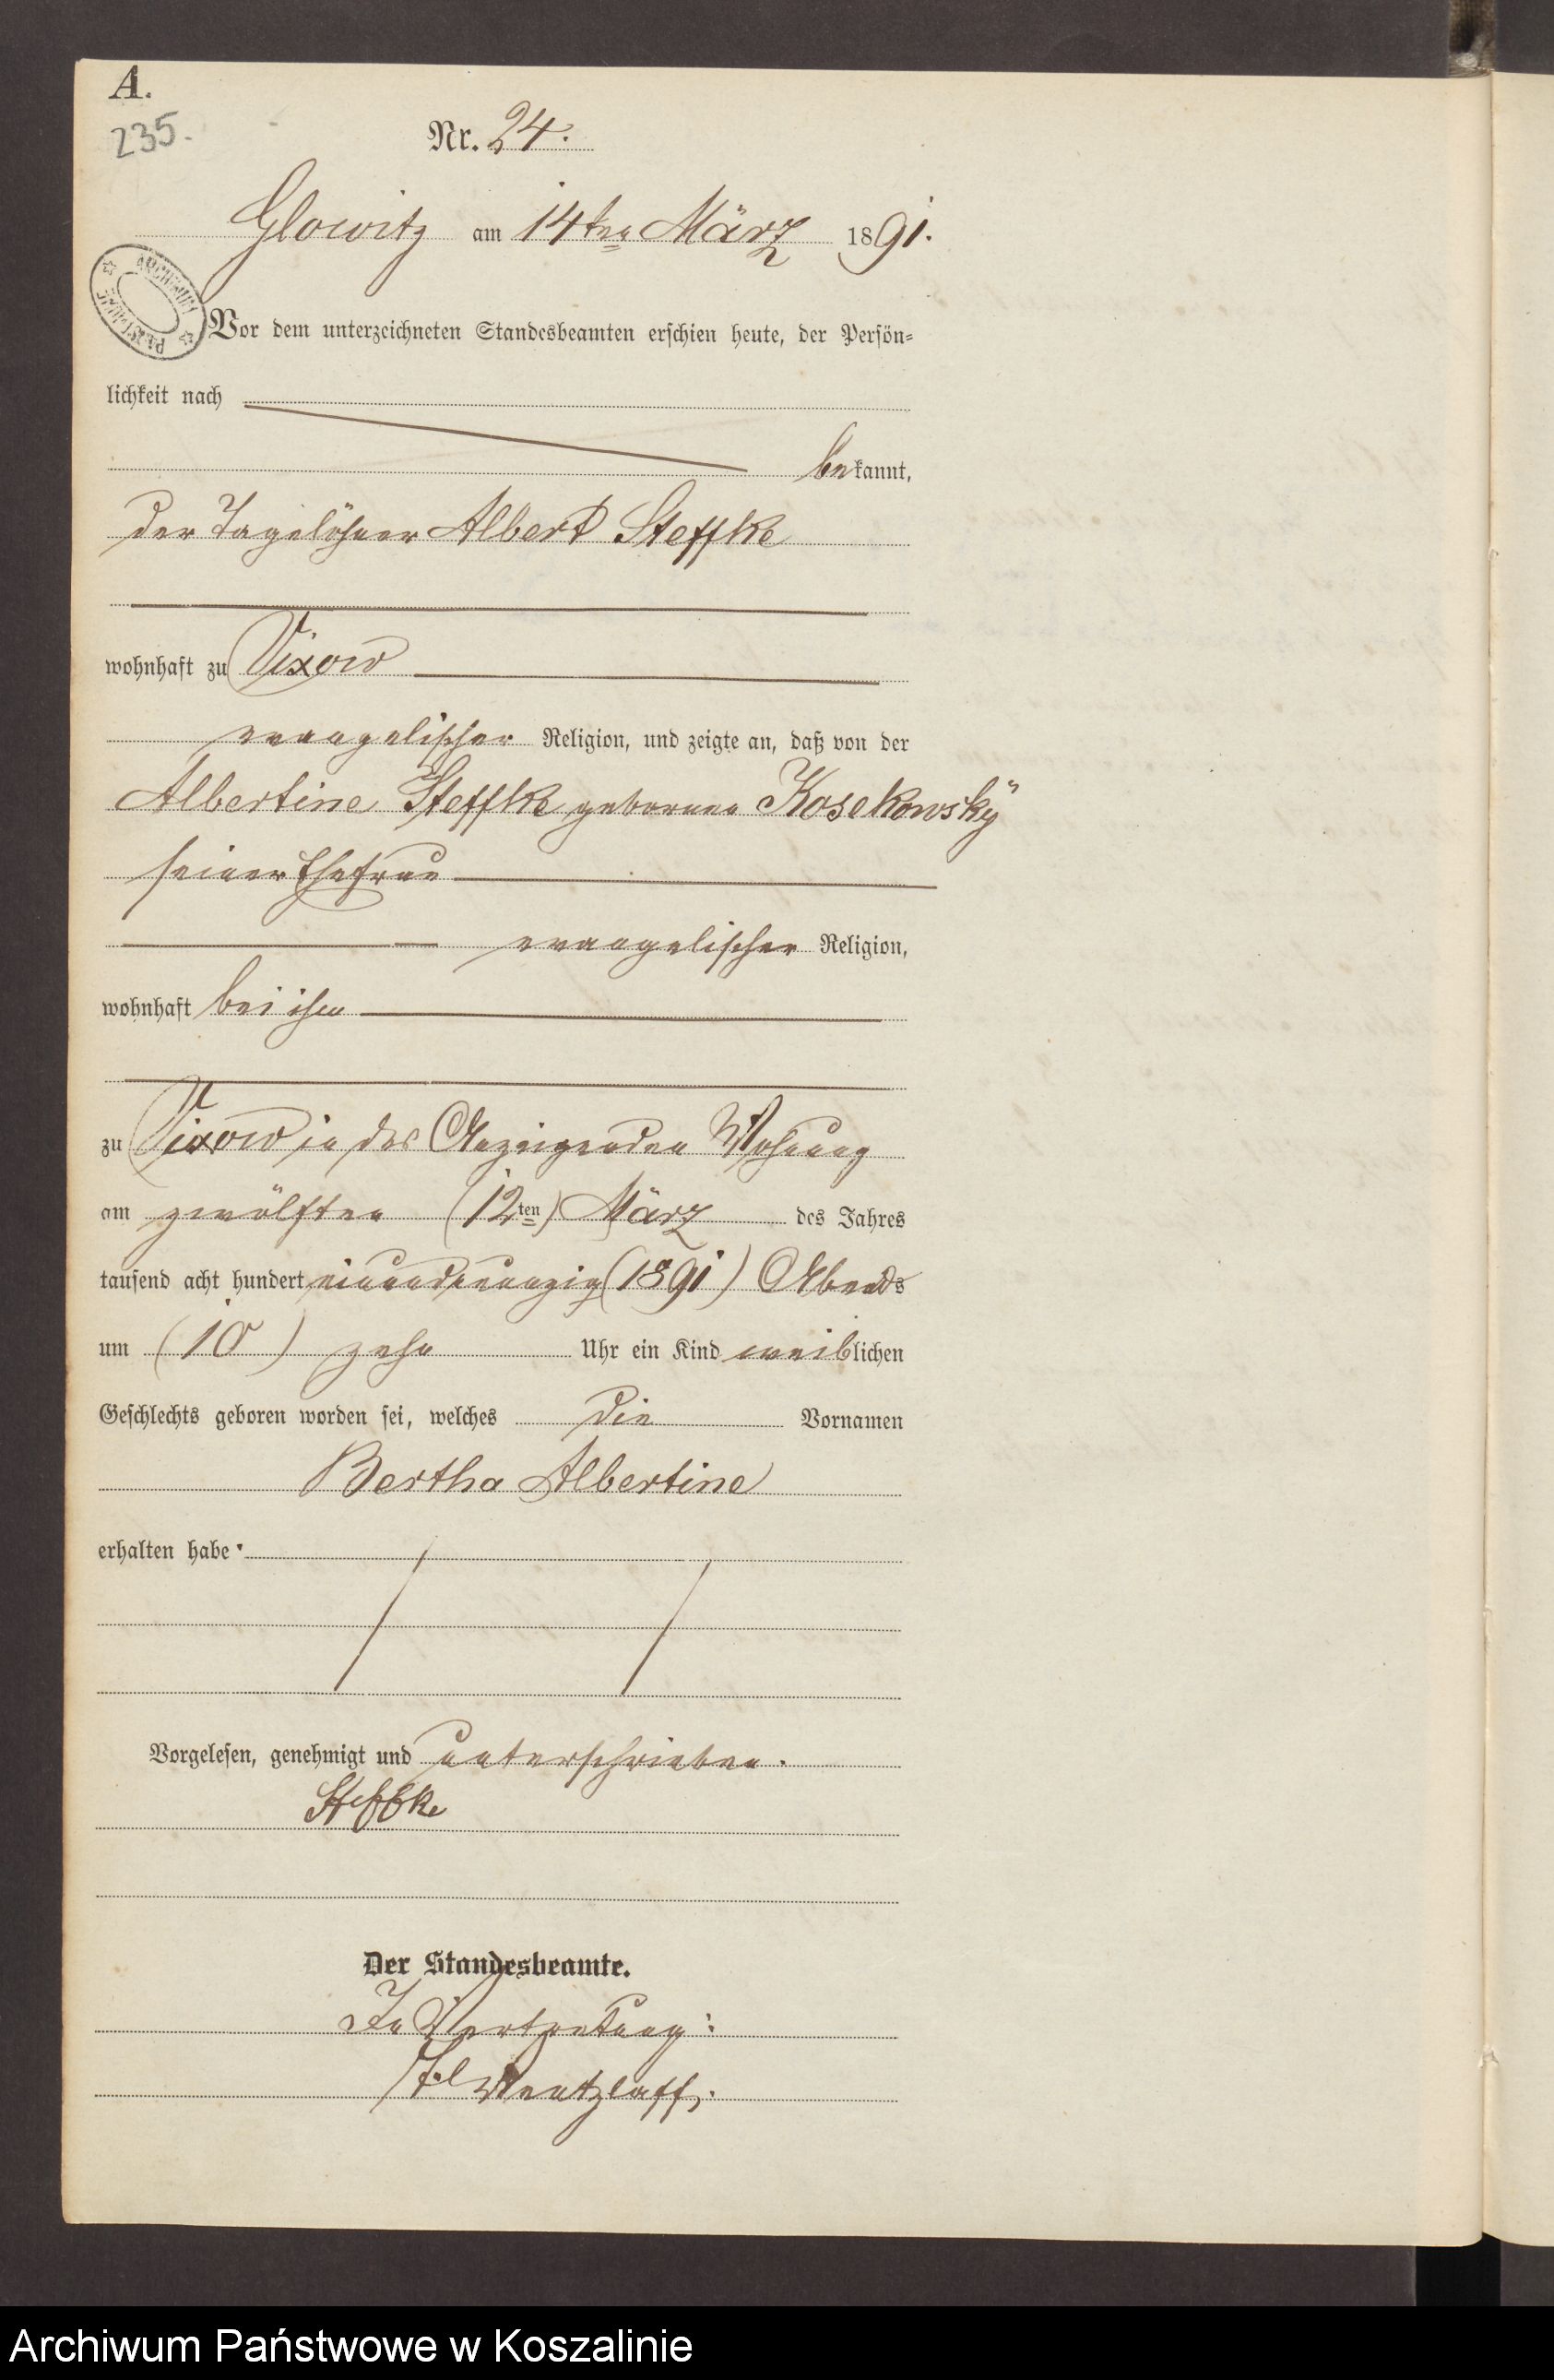 A.
235.
Nr. 24.
Glowitz am 14ten März 1891.
ARCHIWUM PAŃSTWOWE
Vor dem unterzeichneten Standesbeamten erschien heute, der Persön=
lichkeit nach
bekannt,
der Tagelöhner Albert Steffke
wohnhaft zu Vixow
evangelischer Religion, und zeigte an, daß von der
Albertine Steffke geborenen Kosekowsky
seiner Ehefrau
evangelischer Religion,
wohnhaft bei ihm
zu Vixow in des Anzeigenden Wohnung
am zwölften (12ten) März des Jahres
tausend acht hundert einundneunzig (1891) Abends
um (10) zehn Uhr ein Kind weiblichen
Geschlechts geboren worden sei, welches die Vornamen
Bertha Albertine
erhalten habe.
Vorgelesen, genehmigt und unterschrieben.
Steffke
Der Standesbeamte.
In Vertretung:
Wentzlaff.
Archiwum Państwowe w Koszalinie